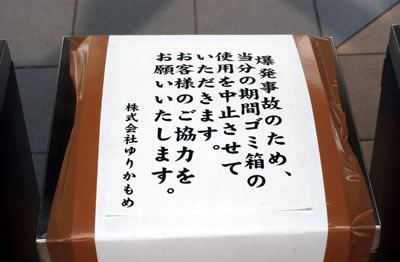 爆発事故のため、
当分の期間ゴミ箱の
使用を中止させて
いただきます。
お客様のご協力を
お願いいたします。
株式会社ゆりかもめ